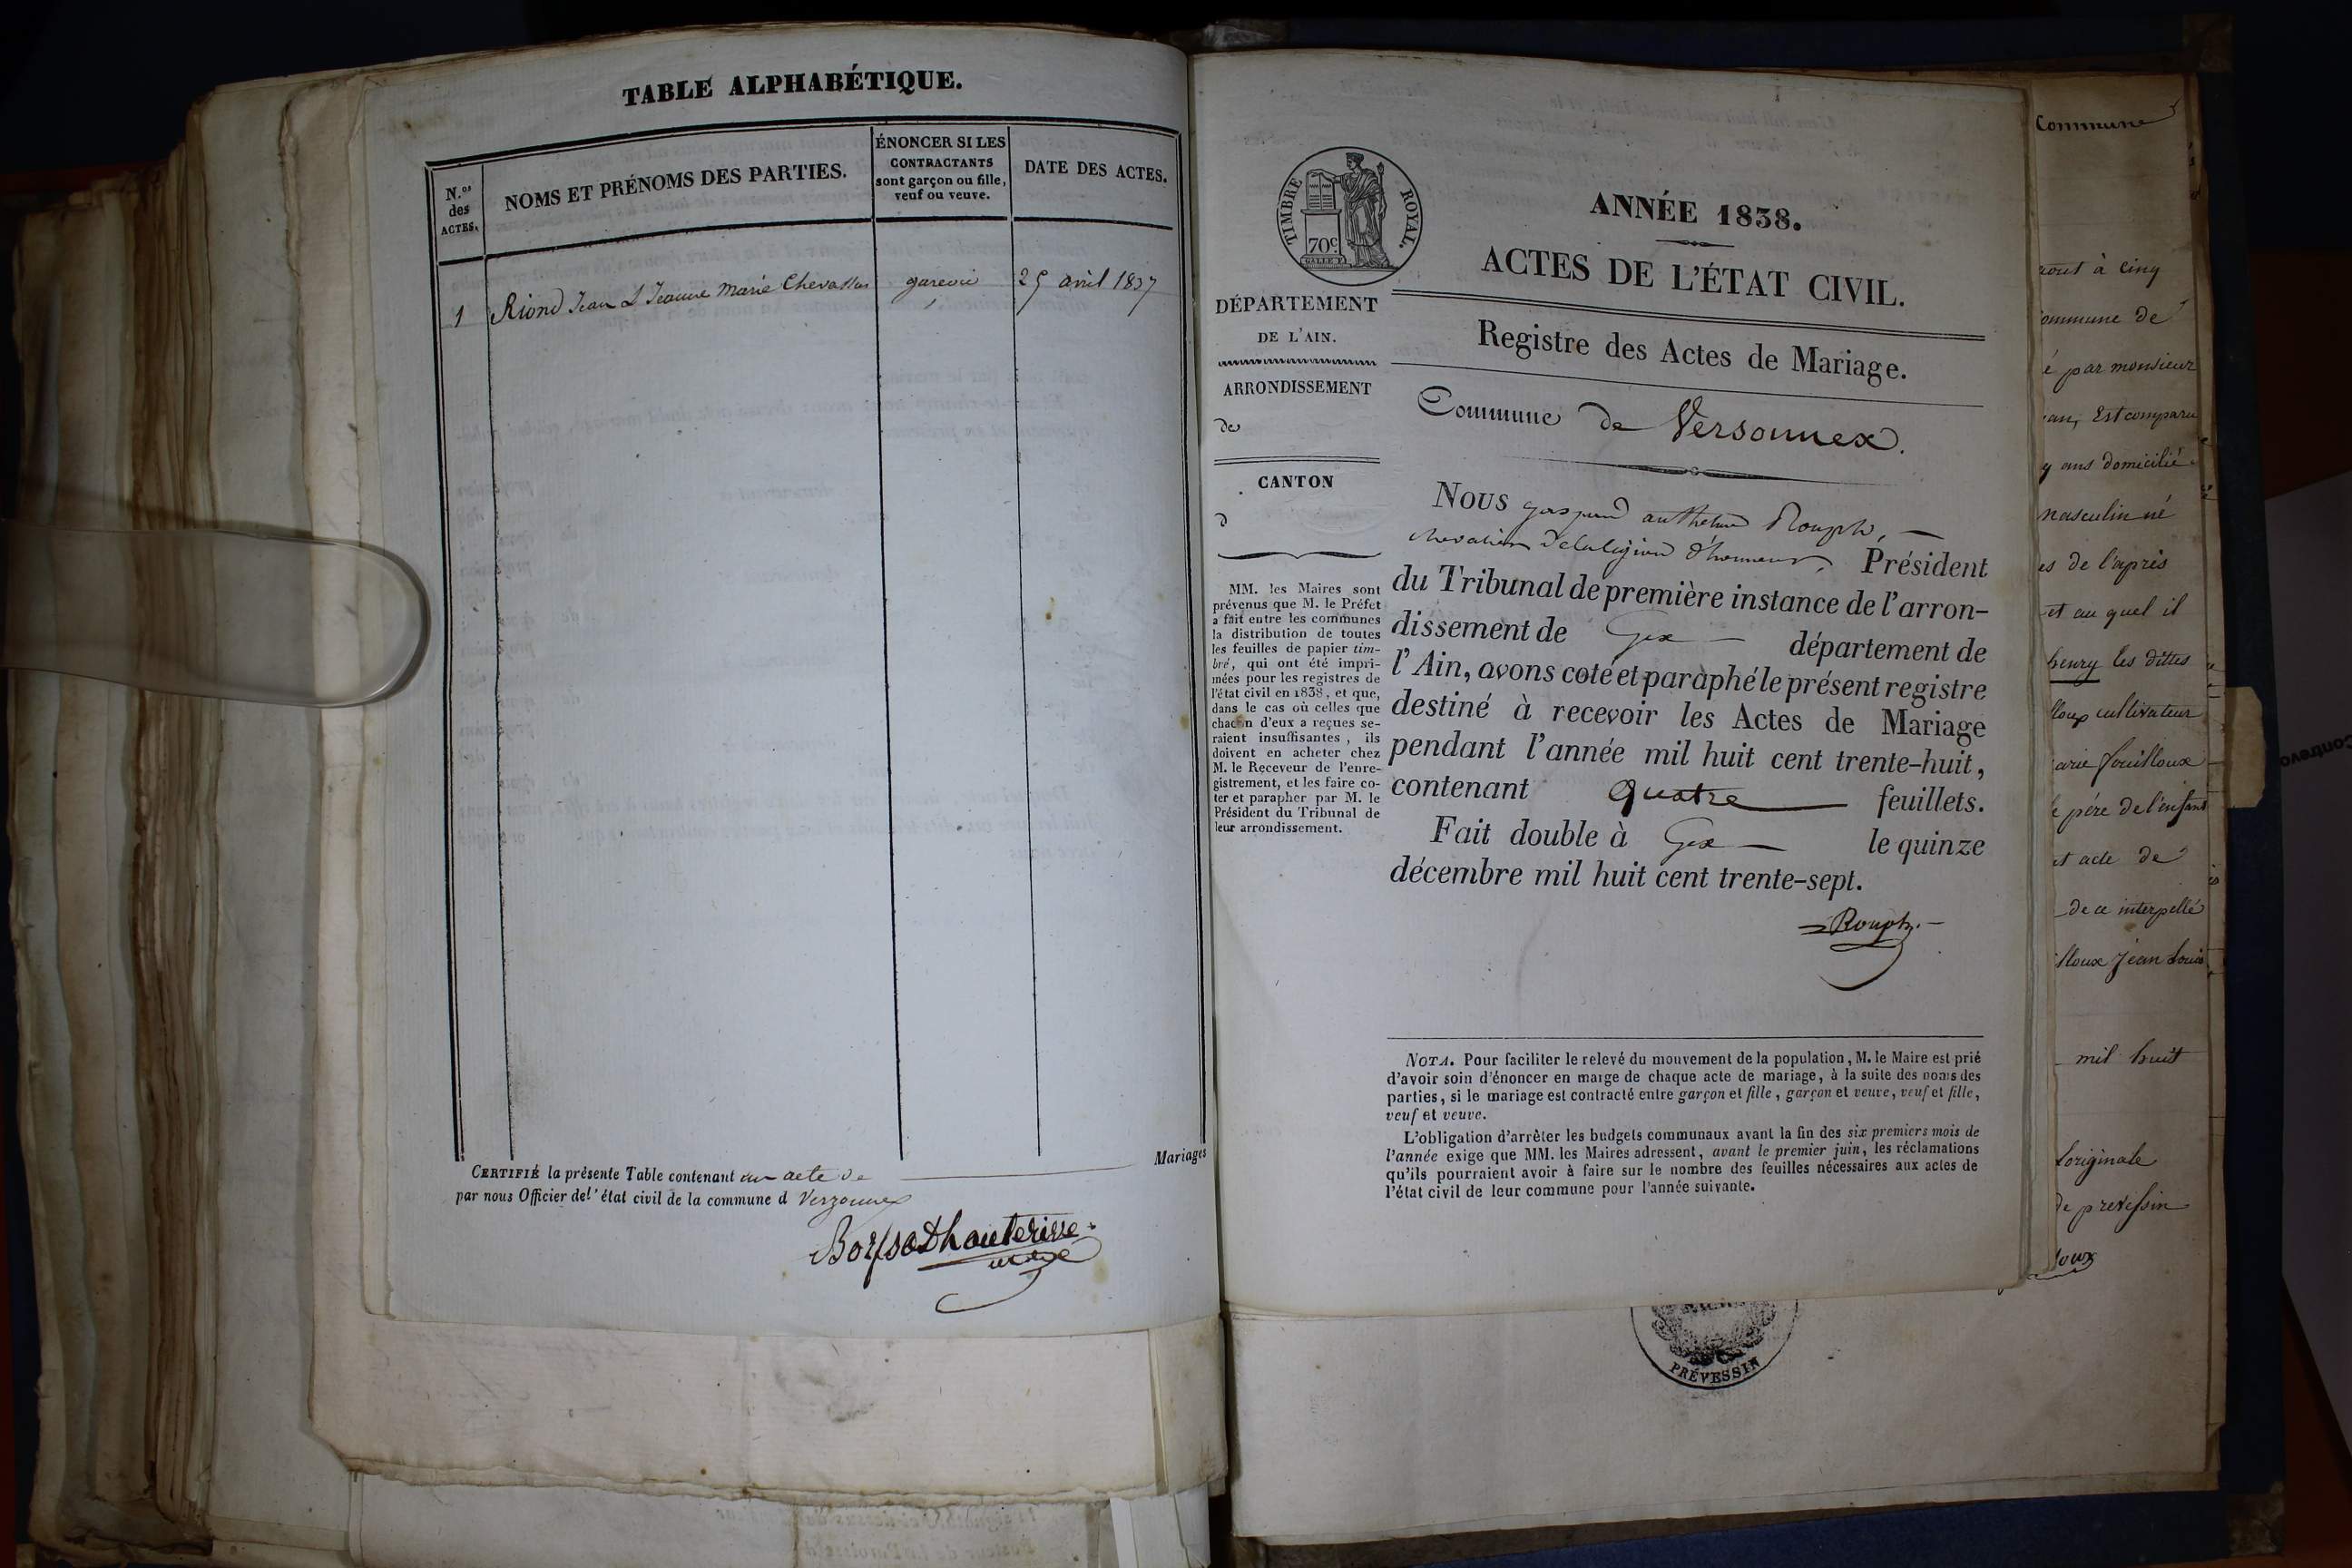 TABLE ALPHABÉTIQUE.
N.os
des
ACTES.
NOMS ET PRÉNOMS DES PARTIES.
ÉNONCER SI LES
CONTRACTANTS
sont garçon ou fille,
veuf ou veuve.
DATE DES ACTES.
1
Riond Jean & Jeanne Marie Chevassus
25 avril 1837
CERTIFIÉ la présente Table contenant un acte de
Mariages
par nous Officier de l'état civil de la commune d Verzonnex
TIMBRE
ROYAL.
70c
DÉPARTEMENT
DE L'AIN.
ARRONDISSEMENT
de
CANTON
d
MM. les Maires sont
prévenus que M. le Préfet
a fait entre les communes
la distribution de toutes
les feuilles de papier tim-
bré, qui ont été impri-
mées pour les registres de
l'état civil en 1838, et que,
dans le cas où celles que
chacun d'eux a reçues se-
raient insuffisantes, ils
doivent en acheter chez
M. le Receveur de l'enre-
gistrement, et les faire co-
ter et parapher par M. le
Président du Tribunal de
leur arrondissement.
ANNÉE 1838.
ACTES DE L'ÉTAT CIVIL.
Registre des Actes de Mariage.
Commune de Versonnex.
Nous gaspard anthelme Rouph,
chevalier de la légion d'honneur, Président
du Tribunal de première instance de l'arron-
dissement de Gex département de
l'Ain, avons coté et paraphé le présent registre
destiné à recevoir les Actes de Mariage
pendant l'année mil huit cent trente-huit,
contenant quatre feuillets.
Fait double à Gex le quinze
décembre mil huit cent trente-sept.
Rouph.
NOTA. Pour faciliter le relevé du mouvement de la population, M. le Maire est prié
d'avoir soin d'énoncer en marge de chaque acte de mariage, à la suite des noms des
parties, si le mariage est contracté entre garçon et fille, garçon et veuve, veuf et fille,
veuf et veuve.
L'obligation d'arrêter les budgets communaux avant la fin des six premiers mois de
l'année exige que MM. les Maires adressent, avant le premier juin, les réclamations
qu'ils pourraient avoir à faire sur le nombre des feuilles nécessaires aux actes de
l'état civil de leur commune pour l'année suivante.
PRÉVESSIN
Commune
à cinq
ommune de
é par monsieur
an, Est comparu
ans domicilié
masculin né
es de l'après
et au quel il
henry les dittes
lloux cultivateur
arie fouilloux
le père de l'enfant
et acte de
de ce interpellé
lloux jean louis
mil huit
l'originale
de prevessin
loux